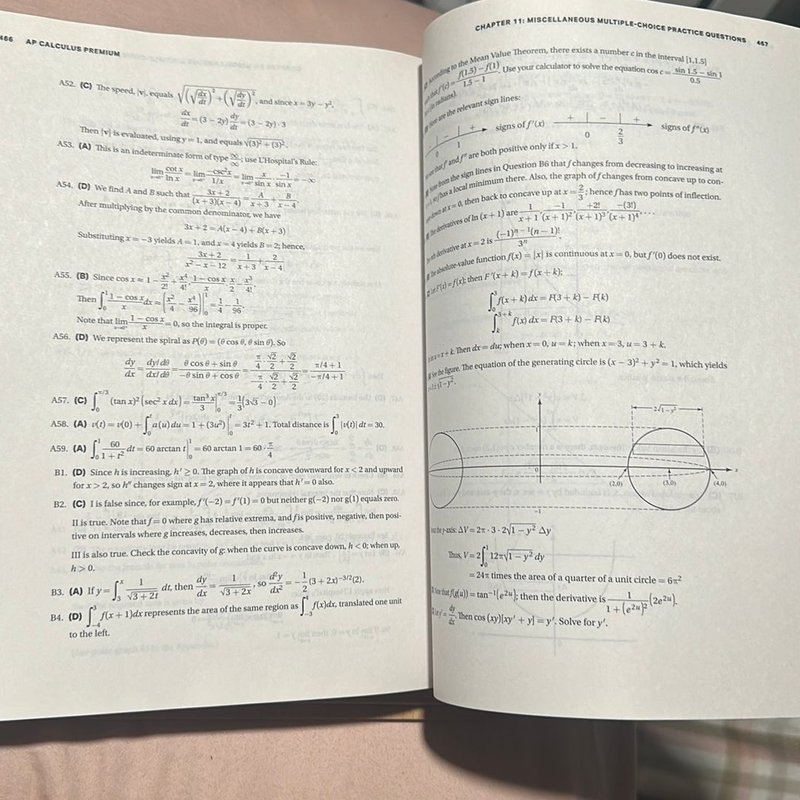 466 AP CALCULUS PREMIUM
A52. (C) The speed, |v|, equals √((√(dx/dt))² + (√(dy/dt))²), and since x = 3y − y²,
dx/dt = (3 − 2y) dy/dt = (3 − 2y) · 3
Then |v| is evaluated, using y = 1, and equals √((3)² + (3)²).
A53. (A) This is an indeterminate form of type ∞/∞; use L'Hospital's Rule:
lim cot x / ln x = lim −csc² x / 1/x = lim x / sin x · −1 / sin x = −∞
A54. (D) We find A and B such that 3x + 2 / (x + 3)(x − 4) = A / x + 3 + B / x − 4.
After multiplying by the common denominator, we have
3x + 2 = A(x − 4) + B(x + 3)
Substituting x = −3 yields A = 1, and x = 4 yields B = 2; hence,
3x + 2 / x² − x − 12 = 1 / x + 3 + 2 / x − 4
A55. (B) Since cos x ≈ 1 − x²/2! + x⁴/4!, 1 − cos x / x ≈ x/2 − x³/4!.
Then ∫₀¹ 1 − cos x / x dx ≈ (x²/4 − x⁴/96)|₀¹ = 1/4 − 1/96.
Note that lim 1 − cos x / x = 0, so the integral is proper.
A56. (D) We represent the spiral as P(θ) = (θ cos θ, θ sin θ). So
dy/dx = dy/dθ / dx/dθ = θ cos θ + sin θ / −θ sin θ + cos θ = π/4 · √2/2 + √2/2 / −π/4 · √2/2 + √2/2 = π/4 + 1 / −π/4 + 1
A57. (C) ∫₀^π/3 (tan x)² (sec² x dx) = tan³ x / 3 |₀^π/3 = 1/3 (3√3 − 0)
A58. (A) v(t) = v(0) + ∫₀ᵗ a(u) du = 1 + (3u²)|₀ᵗ = 3t² + 1. Total distance is ∫₀³ |v(t)| dt = 30.
A59. (A) ∫₀¹ 60 / 1 + t² dt = 60 arctan t |₀¹ = 60 arctan 1 = 60 · π/4
B1. (D) Since h is increasing, h′ ≥ 0. The graph of h is concave downward for x < 2 and upward
for x > 2, so h″ changes sign at x = 2, where it appears that h′ = 0 also.
B2. (C) I is false since, for example, f′(−2) = f′(1) = 0 but neither g(−2) nor g(1) equals zero.
II is true. Note that f = 0 where g has relative extrema, and f is positive, negative, then posi-
tive on intervals where g increases, decreases, then increases.
III is also true. Check the concavity of g: when the curve is concave down, h < 0; when up,
h > 0.
B3. (A) If y = ∫₃ˣ 1 / √(3 + 2t) dt, then dy/dx = 1 / √(3 + 2x), so d²y/dx² = −1/2 (3 + 2x)^−3/2 (2).
B4. (D) ∫₋₄³ f(x + 1) dx represents the area of the same region as ∫₋₃⁴ f(x)dx, translated one unit
to the left.
CHAPTER 11: MISCELLANEOUS MULTIPLE-CHOICE PRACTICE QUESTIONS 467
According to the Mean Value Theorem, there exists a number c in the interval [1,1.5]
that f′(c) = f(1.5) − f(1) / 1.5 − 1. Use your calculator to solve the equation cos c = sin 1.5 − sin 1 / 0.5
(in radians).
are the relevant sign lines:
− | − | + signs of f′(x) + | − | + signs of f″(x)
0 1 0 2/3
that f′ and f″ are both positive only if x > 1.
from the sign lines in Question B6 that f changes from decreasing to increasing at
f has a local minimum there. Also, the graph of f changes from concave up to con-
down at x = 0, then back to concave up at x = 2/3; hence f has two points of inflection.
derivatives of ln (x + 1) are 1 / x + 1, −1 / (x + 1)², +2! / (x + 1)³, −(3!) / (x + 1)⁴, ...
derivative at x = 2 is (−1)ⁿ⁻¹(n − 1)! / 3ⁿ.
absolute-value function f(x) = |x| is continuous at x = 0, but f′(0) does not exist.
F′(x) = f(x); then F′(x + k) = f(x + k);
∫₀³ f(x + k) dx = F(3 + k) − F(k)
∫ₖ³⁺ᵏ f(x) dx = F(3 + k) − F(k)
= x + k. Then dx = du; when x = 0, u = k; when x = 3, u = 3 + k.
See the figure. The equation of the generating circle is (x − 3)² + y² = 1, which yields
± √(1 − y²).
y
2√(1 − y²)
1
0 (2,0) (3,0) (4,0) x
−1
the y-axis: ΔV = 2π · 3 · 2√(1 − y²) Δy
Thus, V = 2∫₀¹ 12π√(1 − y²) dy
= 24π times the area of a quarter of a unit circle = 6π²
that f(g(u)) = tan⁻¹(e²ᵘ); then the derivative is 1 / 1 + (e²ᵘ)² (2e²ᵘ).
y′ = dy/dx. Then cos (xy)[xy′ + y] = y′. Solve for y′.